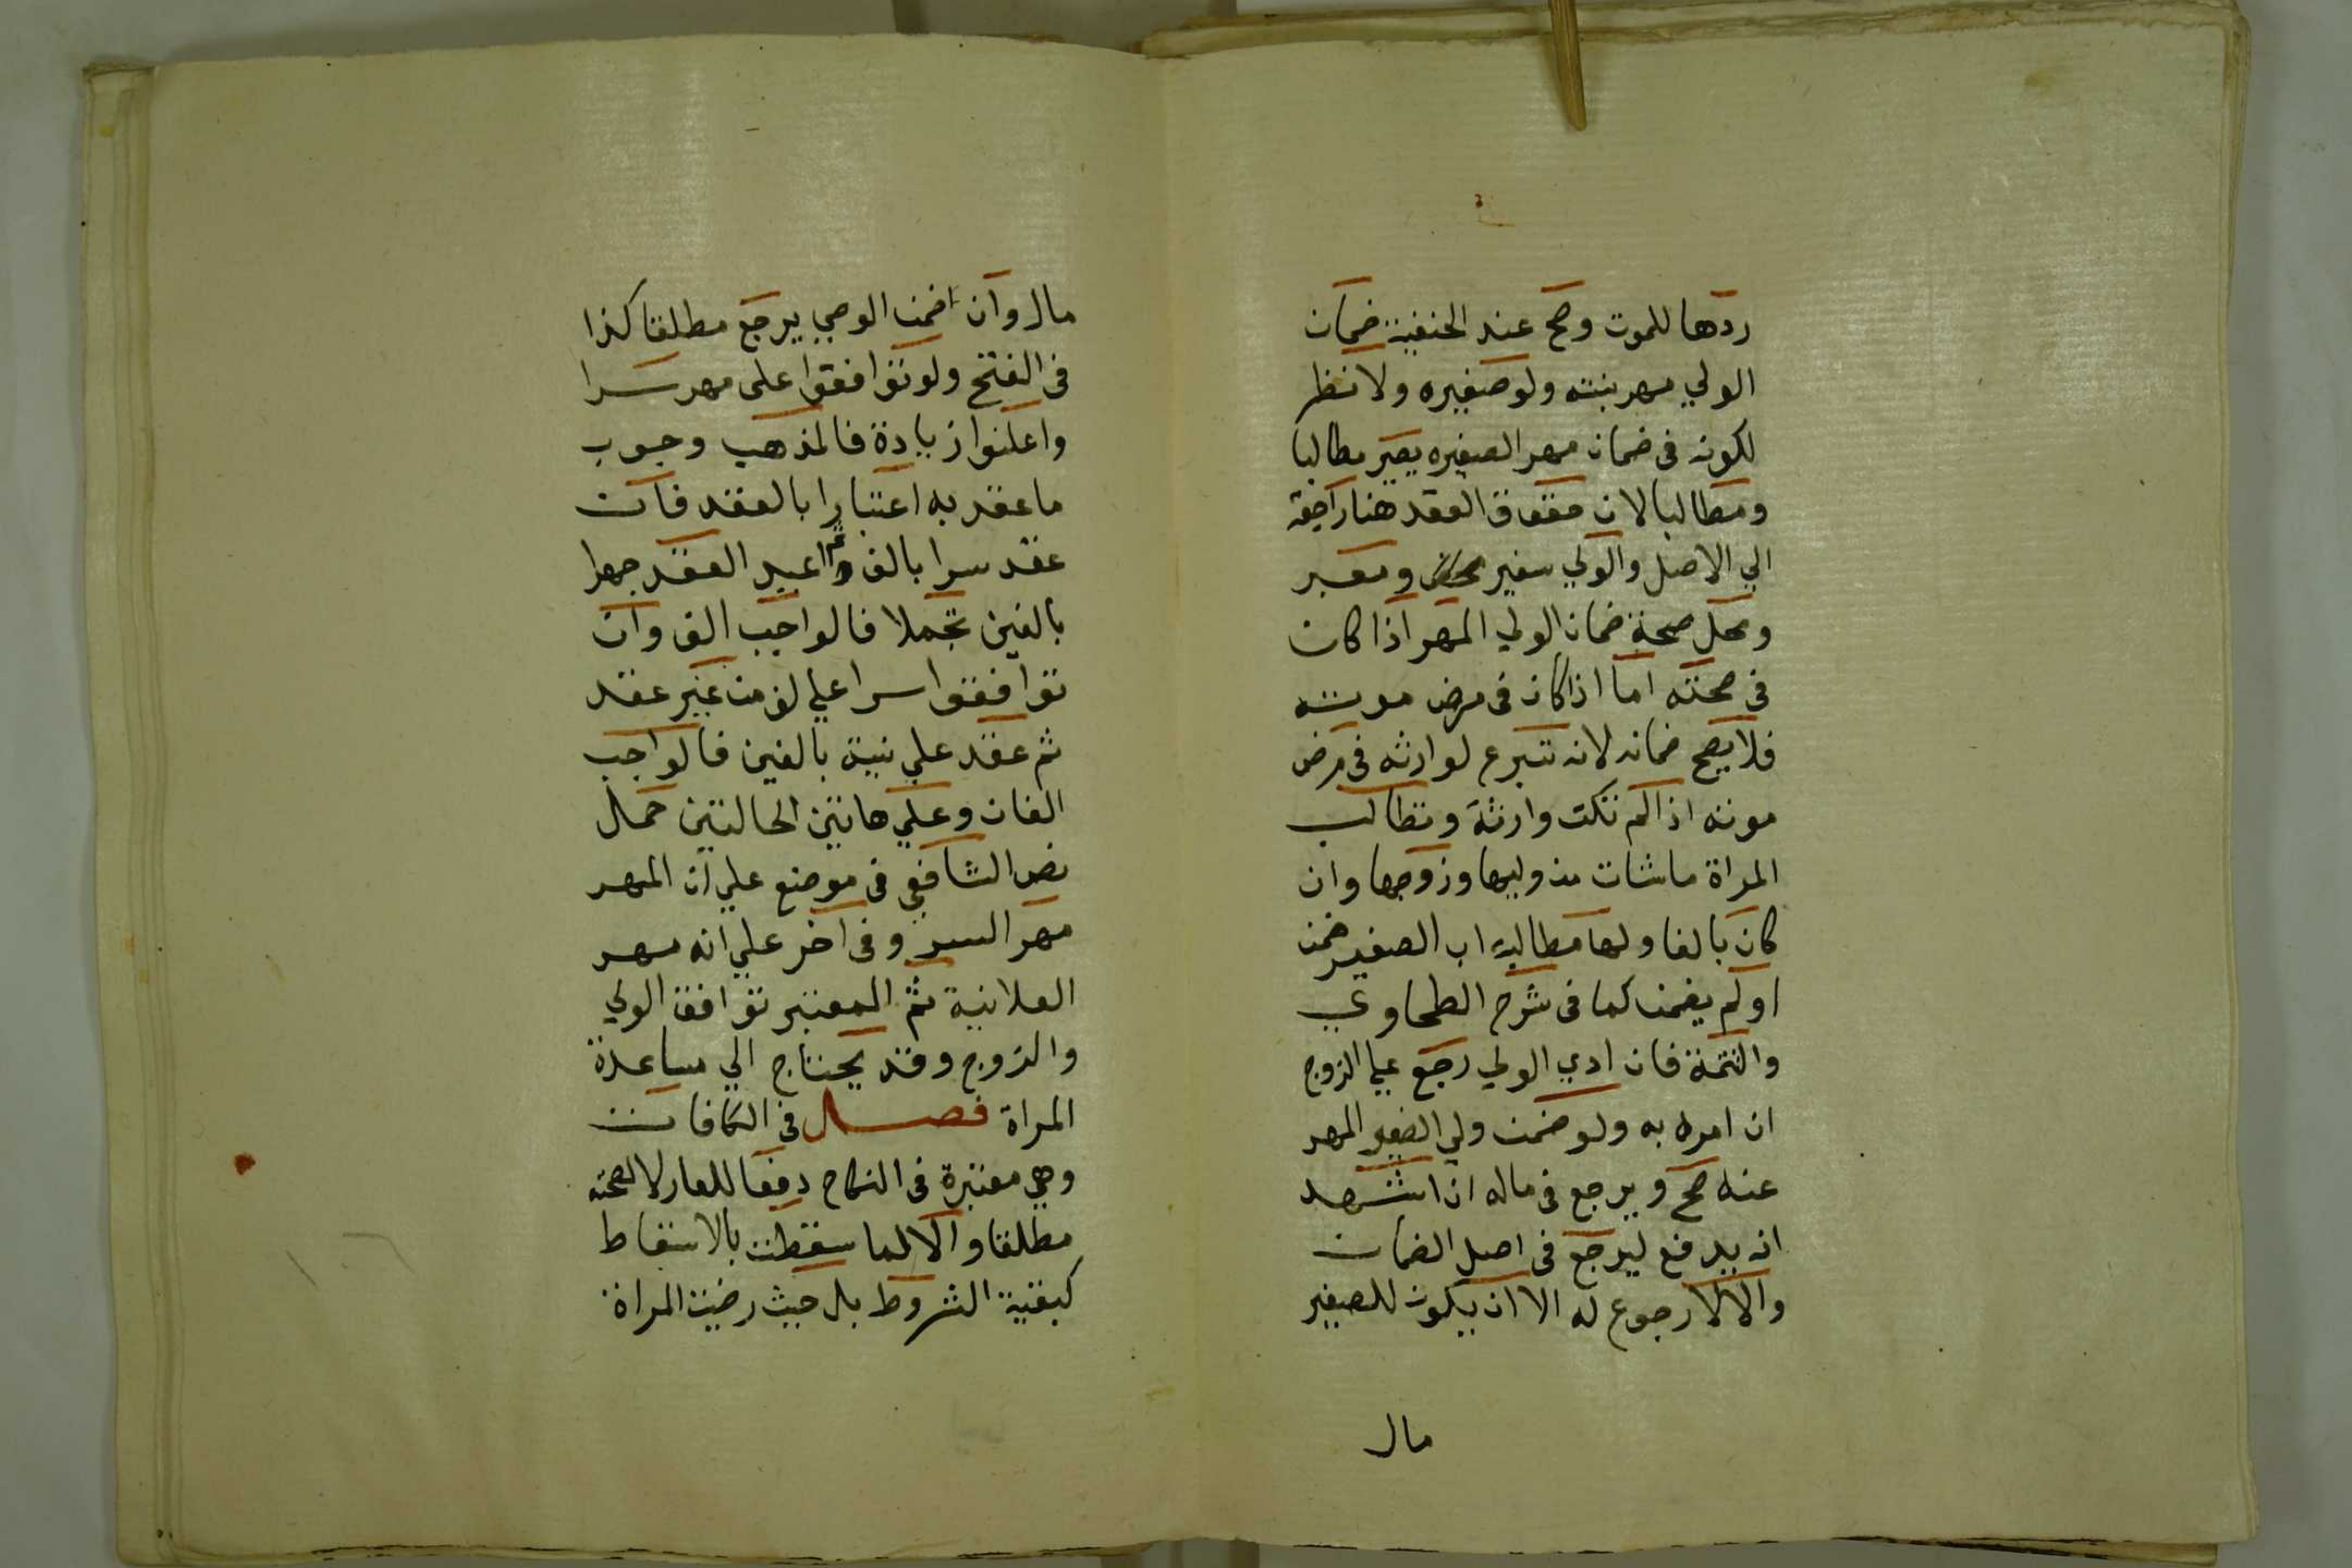 ردها للموت وصح عند الحنفية ضمان
الولي مهر بنته ولو صغيره ولا نظر
لكونه فى ضمان مهر الصغيره يصير مطالبا
ومطالبا لان حقوق العقد هنا راجعة
الي الاصل والولي سفير ومعبر
ومحل صحة ضمان الولي المهر اذا كان
فى صحته اما اذا كان فى مرض موته
فلا يصح ضمانه لانه تبرع لوارثه فى مرض
موته اذا لم تكن وارثة وتطالب
المراة ماشات من وليها وزوجها وان
كان بالغا ولها مطالبة اب الصغير ضمن
او لم يضمن كما فى شرح الطحاوي
والتتمة فان ادي الولي رجع علي الزوج
ان امره به ولو ضمن ولي الصغير المهر
عنه صح ويرجع فى ماله ان اشهد
انه يدفع ليرجع فى اصل الضمان
والا لا رجوع له الا ان يكون للصغير
مال
مال وان ضمن الوصي يرجع مطلقا كذا
فى الفتح ولو توافقوا على مهر سرا
واعلنوا زيادة فالمذهب وجوب
ما عقد به اعتبارا بالعقد فان
عقد سرا بالف ثم اعيد العقد جهرا
بالفين تجملا فالواجب الف وان
توافقوا سرا علي الف من غير عقد
ثم عقد علانية بالفين فالواجب
الفان وعلي هاتين الحالتين حمل
نص الشافعي فى موضع علي ان المهر
مهر السر وفى اخر علي انه مهر
العلانية ثم المعتبر توافق الولي
والزوج وقد يحتاج الي مساعدة
المراة فصل فى الكافات
وهي معتبرة فى النكاح دفعا للعار لا لصحته
مطلقا والا لما سقطت بالاسقاط
كبقية الشروط بل حيث رضيت المراة